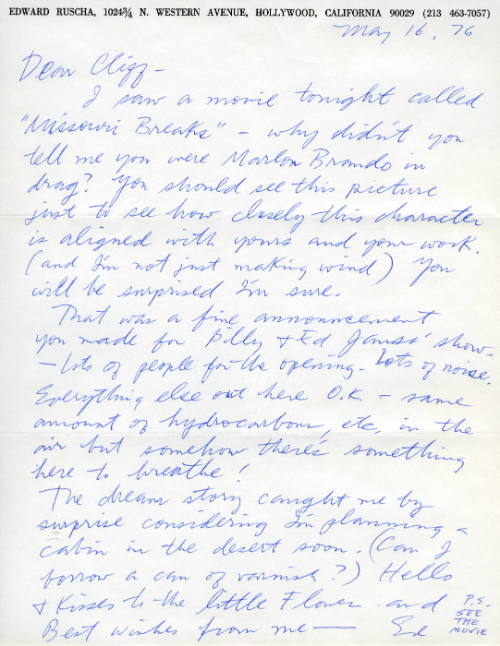 EDWARD RUSCHA, 1024¾ N. WESTERN AVENUE, HOLLYWOOD, CALIFORNIA 90029 (213 463-7057)
May 16, 76
Dear Cliff –
I saw a movie tonight called
"Missouri Breaks" – why didn't you
tell me you were Marlon Brando in
drag? You should see this picture
just to see how closely this character
is aligned with yours and your work.
(and I'm not just making wind) You
will be surprised I'm sure.
That was a fine announcement
you made for Billy & Ed Janss' show –
– Lots of people for the opening. Lots of noise.
Everything else out here O.K – same
amount of hydrocarbons, etc, in the
air but somehow there's something
here to breathe!
The dream story caught me by
surprise considering I'm planning a
cabin in the desert soon. (Can I
borrow a can of varnish?) Hello
& Kisses to the little Flower and
Best wishes from me — Ed
P.S.
SEE
THE
MOVIE